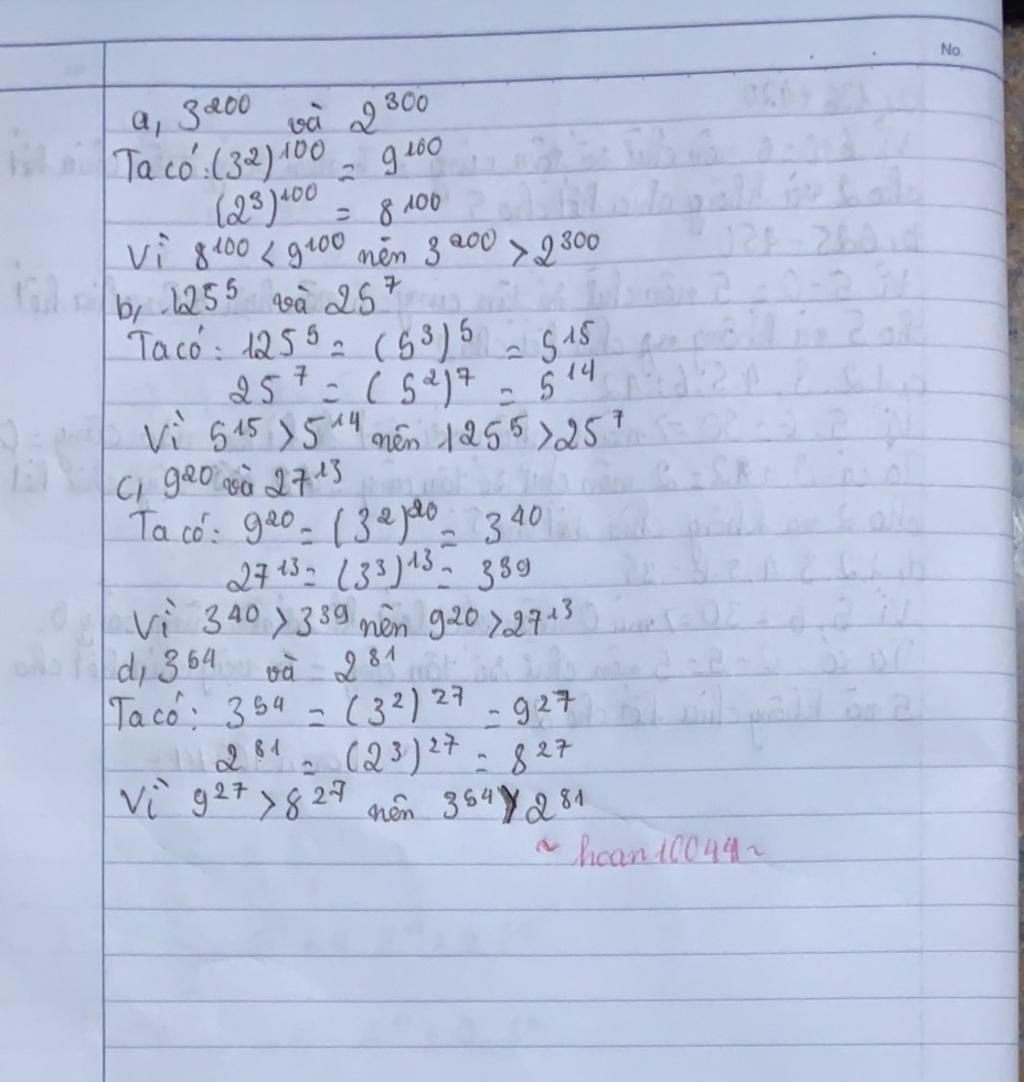 No.
a, 3^200 và 2^300
Ta có: (3^2)^100 = 9^100
(2^3)^100 = 8^100
Vì 8^100 < 9^100 nên 3^200 > 2^300
b, 125^5 và 25^7
Ta có: 125^5 = (5^3)^5 = 5^15
25^7 = (5^2)^7 = 5^14
Vì 5^15 > 5^14 nên 125^5 > 25^7
c, 9^20 và 27^13
Ta có: 9^20 = (3^2)^20 = 3^40
27^13 = (3^3)^13 = 3^39
Vì 3^40 > 3^39 nên 9^20 > 27^13
d, 3^54 và 2^81
Ta có: 3^54 = (3^2)^27 = 9^27
2^81 = (2^3)^27 = 8^27
Vì 9^27 > 8^27 nên 3^54 > 2^81
~ hoan10044~